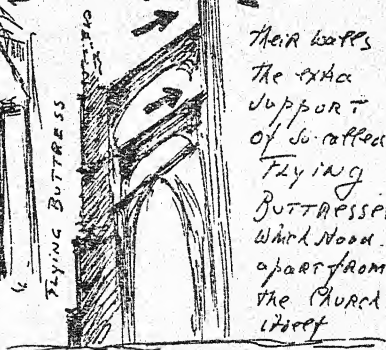 FLYING BUTTRESS
their walls
the extra
support
of so-called
Flying
Buttresses
which stood
apart from
the Church
itself